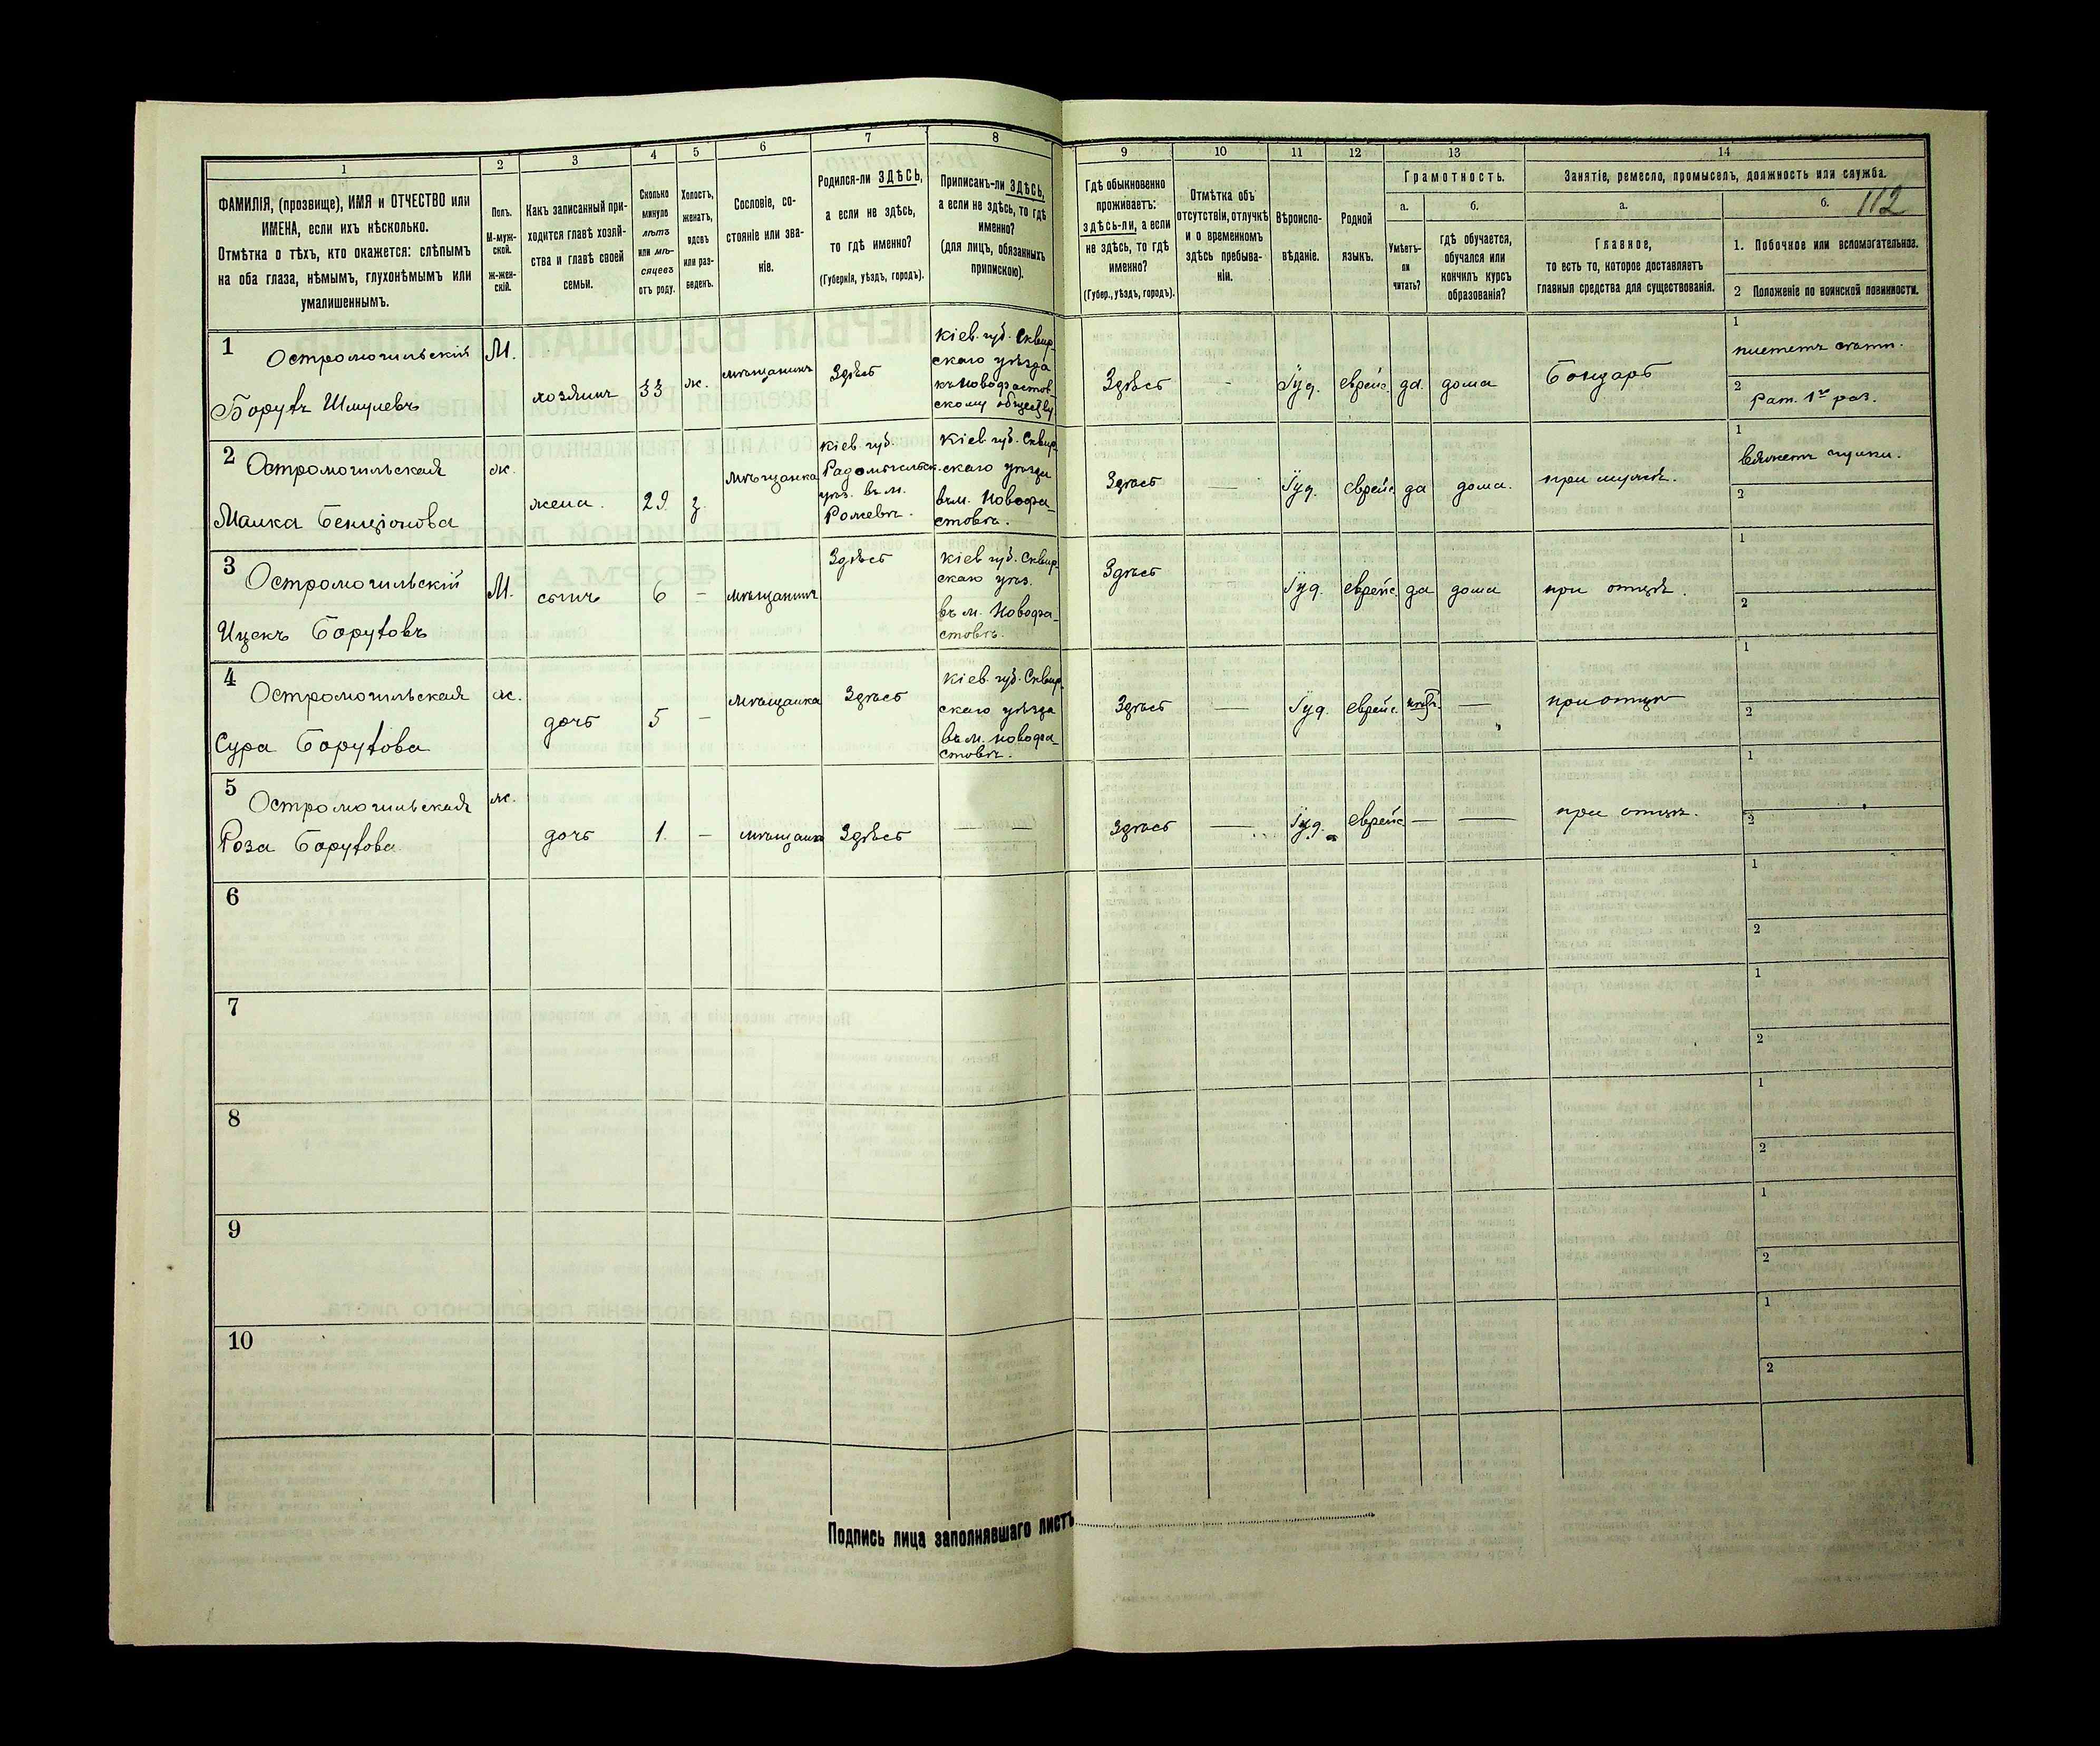 1
2
3
4
5
6
7
8
ФАМИЛІЯ, (прозвище), ИМЯ и ОТЧЕСТВО или
ИМЕНА, если ихъ нѣсколько.
Отмѣтка о тѣхъ, кто окажется: слѣпымъ
на оба глаза, нѣмымъ, глухонѣмымъ или
умалишеннымъ.
Полъ.
М-муж-
ской.
ж-жен-
скій.
Какъ записанный при-
ходится главѣ хозяй-
ства и главѣ своей
семьи.
Сколько
минуло
лѣтъ
или мѣ-
сяцевъ
отъ роду.
Холостъ,
женатъ,
вдовъ
или раз-
веденъ.
Сословіе, со-
стояніе или зва-
ніе.
Родился-ли ЗДѢСЬ,
а если не здѣсь,
то гдѣ именно?
(Губернія, уѣздъ, городъ).
Приписанъ-ли ЗДѢСЬ,
а если не здѣсь, то гдѣ
именно?
(для лицъ, обязанныхъ
припискою).
9
10
11
12
13
14
Гдѣ обыкновенно
проживаетъ:
здѣсь-ли, а если
не здѣсь, то гдѣ
именно?
(Губер., уѣздъ, городъ).
Отмѣтка объ
отсутствіи, отлучкѣ
и о временномъ
здѣсь пребыва-
ніи.
Вѣроиспо-
вѣданіе.
Родной
языкъ.
Грамотность.
а.
Умѣетъ-
ли
читать?
б.
гдѣ обучается,
обучался или
кончилъ курсъ
образованія?
Занятіе, ремесло, промыселъ, должность или служба.
а.
Главное,
то есть то, которое доставляетъ
главныя средства для существованія.
б.
112
1. Побочное или вспомогательное.
2 Положеніе по воинской повинности.
1
Остромогильскій
Борухъ Шмулевъ
М.
хозяинъ
33
ж.
мѣщанинъ
Здѣсь
Кіев. губ. Сквир-
скаго уѣзда
къ Новофастов-
скому обществу
Здѣсь
-
Іуд.
еврейс.
да
дома
Бондарь
1
2
Рат. 1го раз.
2
Остромогильская
Малка Бенціонова
ж.
жена.
29
з.
мѣщанка
Кіев. губ.
Радомысльск.
уѣз. въ м.
Рожевѣ.
Кіев. губ. Сквир-
скаго уѣзда
въ м. Новофа-
стовѣ.
Здѣсь
—
Іуд.
еврейс
да
дома.
при мужѣ.
1
вяжетъ чулки.
2
3
Остромогильскій
Ицекъ Боруховъ
М.
сынъ
6
—
мѣщанинъ
Здѣсь
Кіев. губ. Сквир-
скаго уѣз.
въ м. Новофа-
стовѣ.
Здѣсь
—
Іуд.
еврейс.
да
дома
при отцѣ.
1
2
4
Остромогильская
Сура Борухова
ж.
дочь
5
—
мѣщанка
Здѣсь
Кіев. губ. Сквир-
скаго уѣзда
въ м. Новофа-
стовѣ.
Здѣсь
—
Іуд.
еврейс.
нѣтъ
—
при отцѣ
1
2
5
Остромогильская
Роза Борухова
ж.
дочь
1.
—
мѣщанка
Здѣсь
— —
Здѣсь
—
Іуд.
еврейс
—
—
при отцѣ.
1
2
6
1
2
7
1
2
8
1
2
9
1
2
10
1
2
Подпись лица заполнявшаго листъ